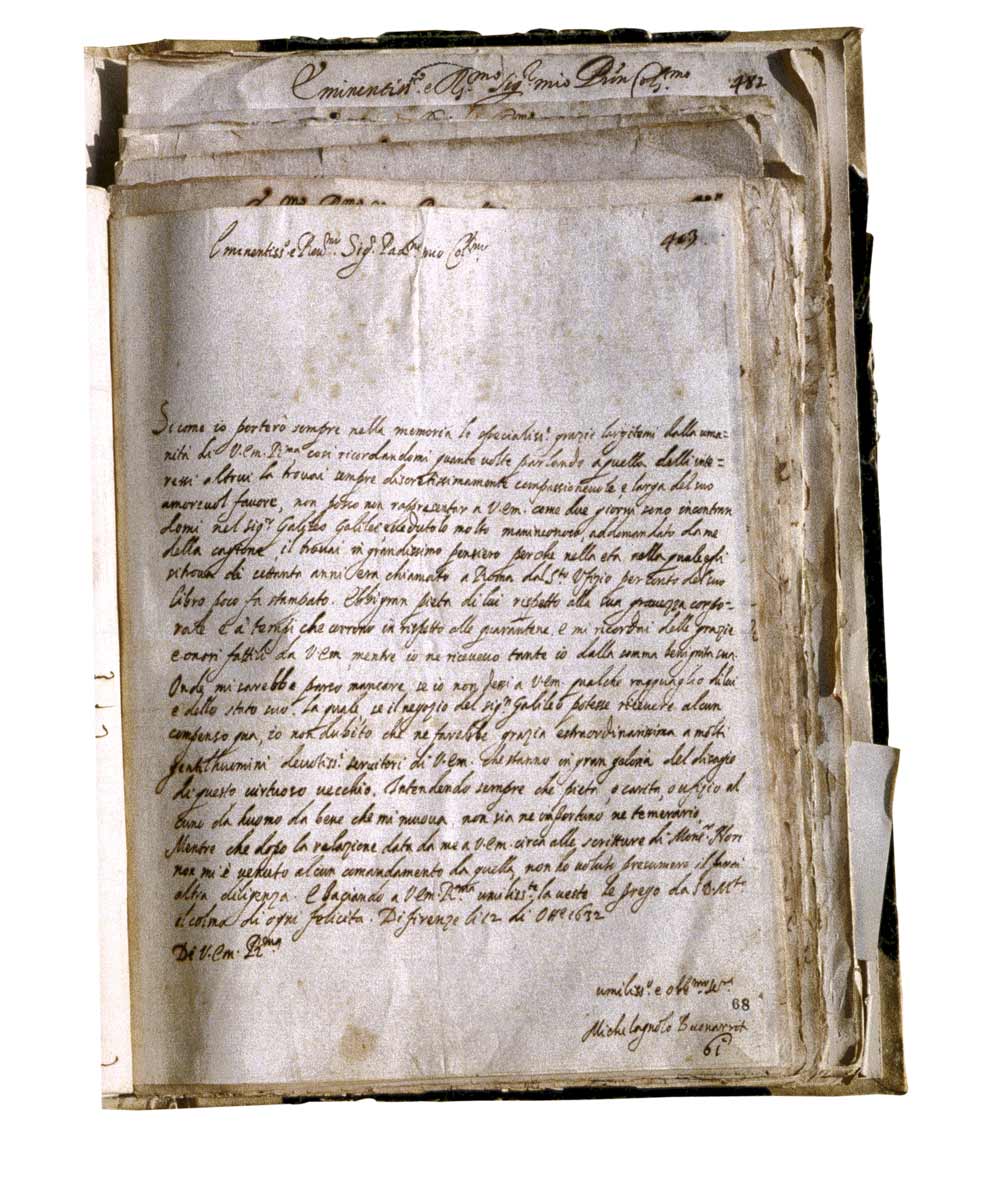 Eminentiss.º e R.mo Sig.r mio Prõn Col.mo 482
Eminentiss.º e Reu.mo Sig.r Padne mio Col.mo 483
Si come io porterò sempre nella memoria le specialiss.e grazie largitemi dalla uma=
nità di V. Em. R.ma così ricordandomi quante volte parlando a quella delli inte=
ressi altrui la trouai sempre discretissimamente compassioneuole e larga del suo
amoreuol fauore, non posso non rappresentar a V. Em. come due giorni sono incontran
domi nel sig.r Galileo Galilei e vedutolo molto maninconoso, addomandato da me
della cagione, il trouai in grandissimo pensiero perche nella età nella quale egli
si troua di settanta anni era chiamato a Roma da S.to Ufizio per conto del suo
libro poco fa stampato. Ebbi gran pietà di lui rispetto alla sua grauezza corpo=
rale e a' tempi che corrono in rispetto alle quarantene, e mi ricordai delle grazie
e onori fattili da V. Em. mentre io ne riceueuo tante io dalla somma benignità sua.
Onde mi sarebbe parso mancare, se io non dessi a V. Em. qualche ragguaglio di lui
e dello stato suo. La quale se il negozio del sig.r Galileo potesse riceuere alcun
compenso qua, io non dubito che ne farebbe grazia estraordinarissima a molti
gentilhuomini deuotiss.i seruitori di V. Em. che stanno in gran gelosia del disagio
di questo uirtuoso uecchio. Intendendo sempre che pietà, o carità, o ufizio al
cuno da huomo da bene che mi muoua, non sia ne importuno ne temerario,
Mentre che dopo la relazione data da me a V. Em. circa alle scritture di Mons.r
non mi è venuto alcun comandamento da quella, non ho voluto presumere il farci
altra diligenza. E baciando a V. Em. R.ma umiliss.te la ueste le prego da S. D. M.tà
il colmo di ogni felicità. Di firenze li 12 di Ott.e 1632
Di V. Em. R.ma
umiliss.º e obb.mo ser.re
68
Michelagnolo Buonarroti
61